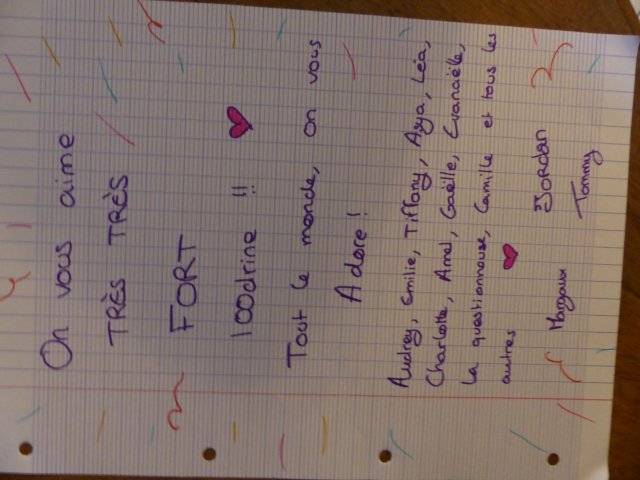 On vous aime
TRÈS TRÈS
FORT
100drine !! ♥
Tout le monde, on vous
Adore !
Audrey, Emilie, Tiffany, Asya, Léa,
Charlotte, Amel, Gaëlle, Evanaëlle,
La questionneuse, Camille et tous les
autres ♥
Margaux Jordan
Tommy